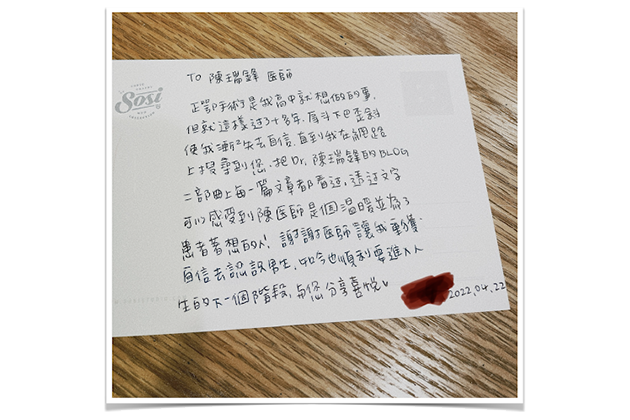 TO 陳瑞鋒 医師
Sosi
正顎手術是我高中就想做的事,
但就這樣过了十多年. 戽斗下巴歪斜
使我漸漸失去自信, 直到我在網路
上搜尋到您. 把 Dr. 陳瑞鋒的BLOG
二部曲上每一篇文章都看过, 透过文字
可以感受到陳医師是個溫暖並為了
患者著想的人! 謝謝医師讓我重獲
自信去認識男生, 如今也順利要進入人
生的下一個階段, 与您分享喜悅
2022.04.22